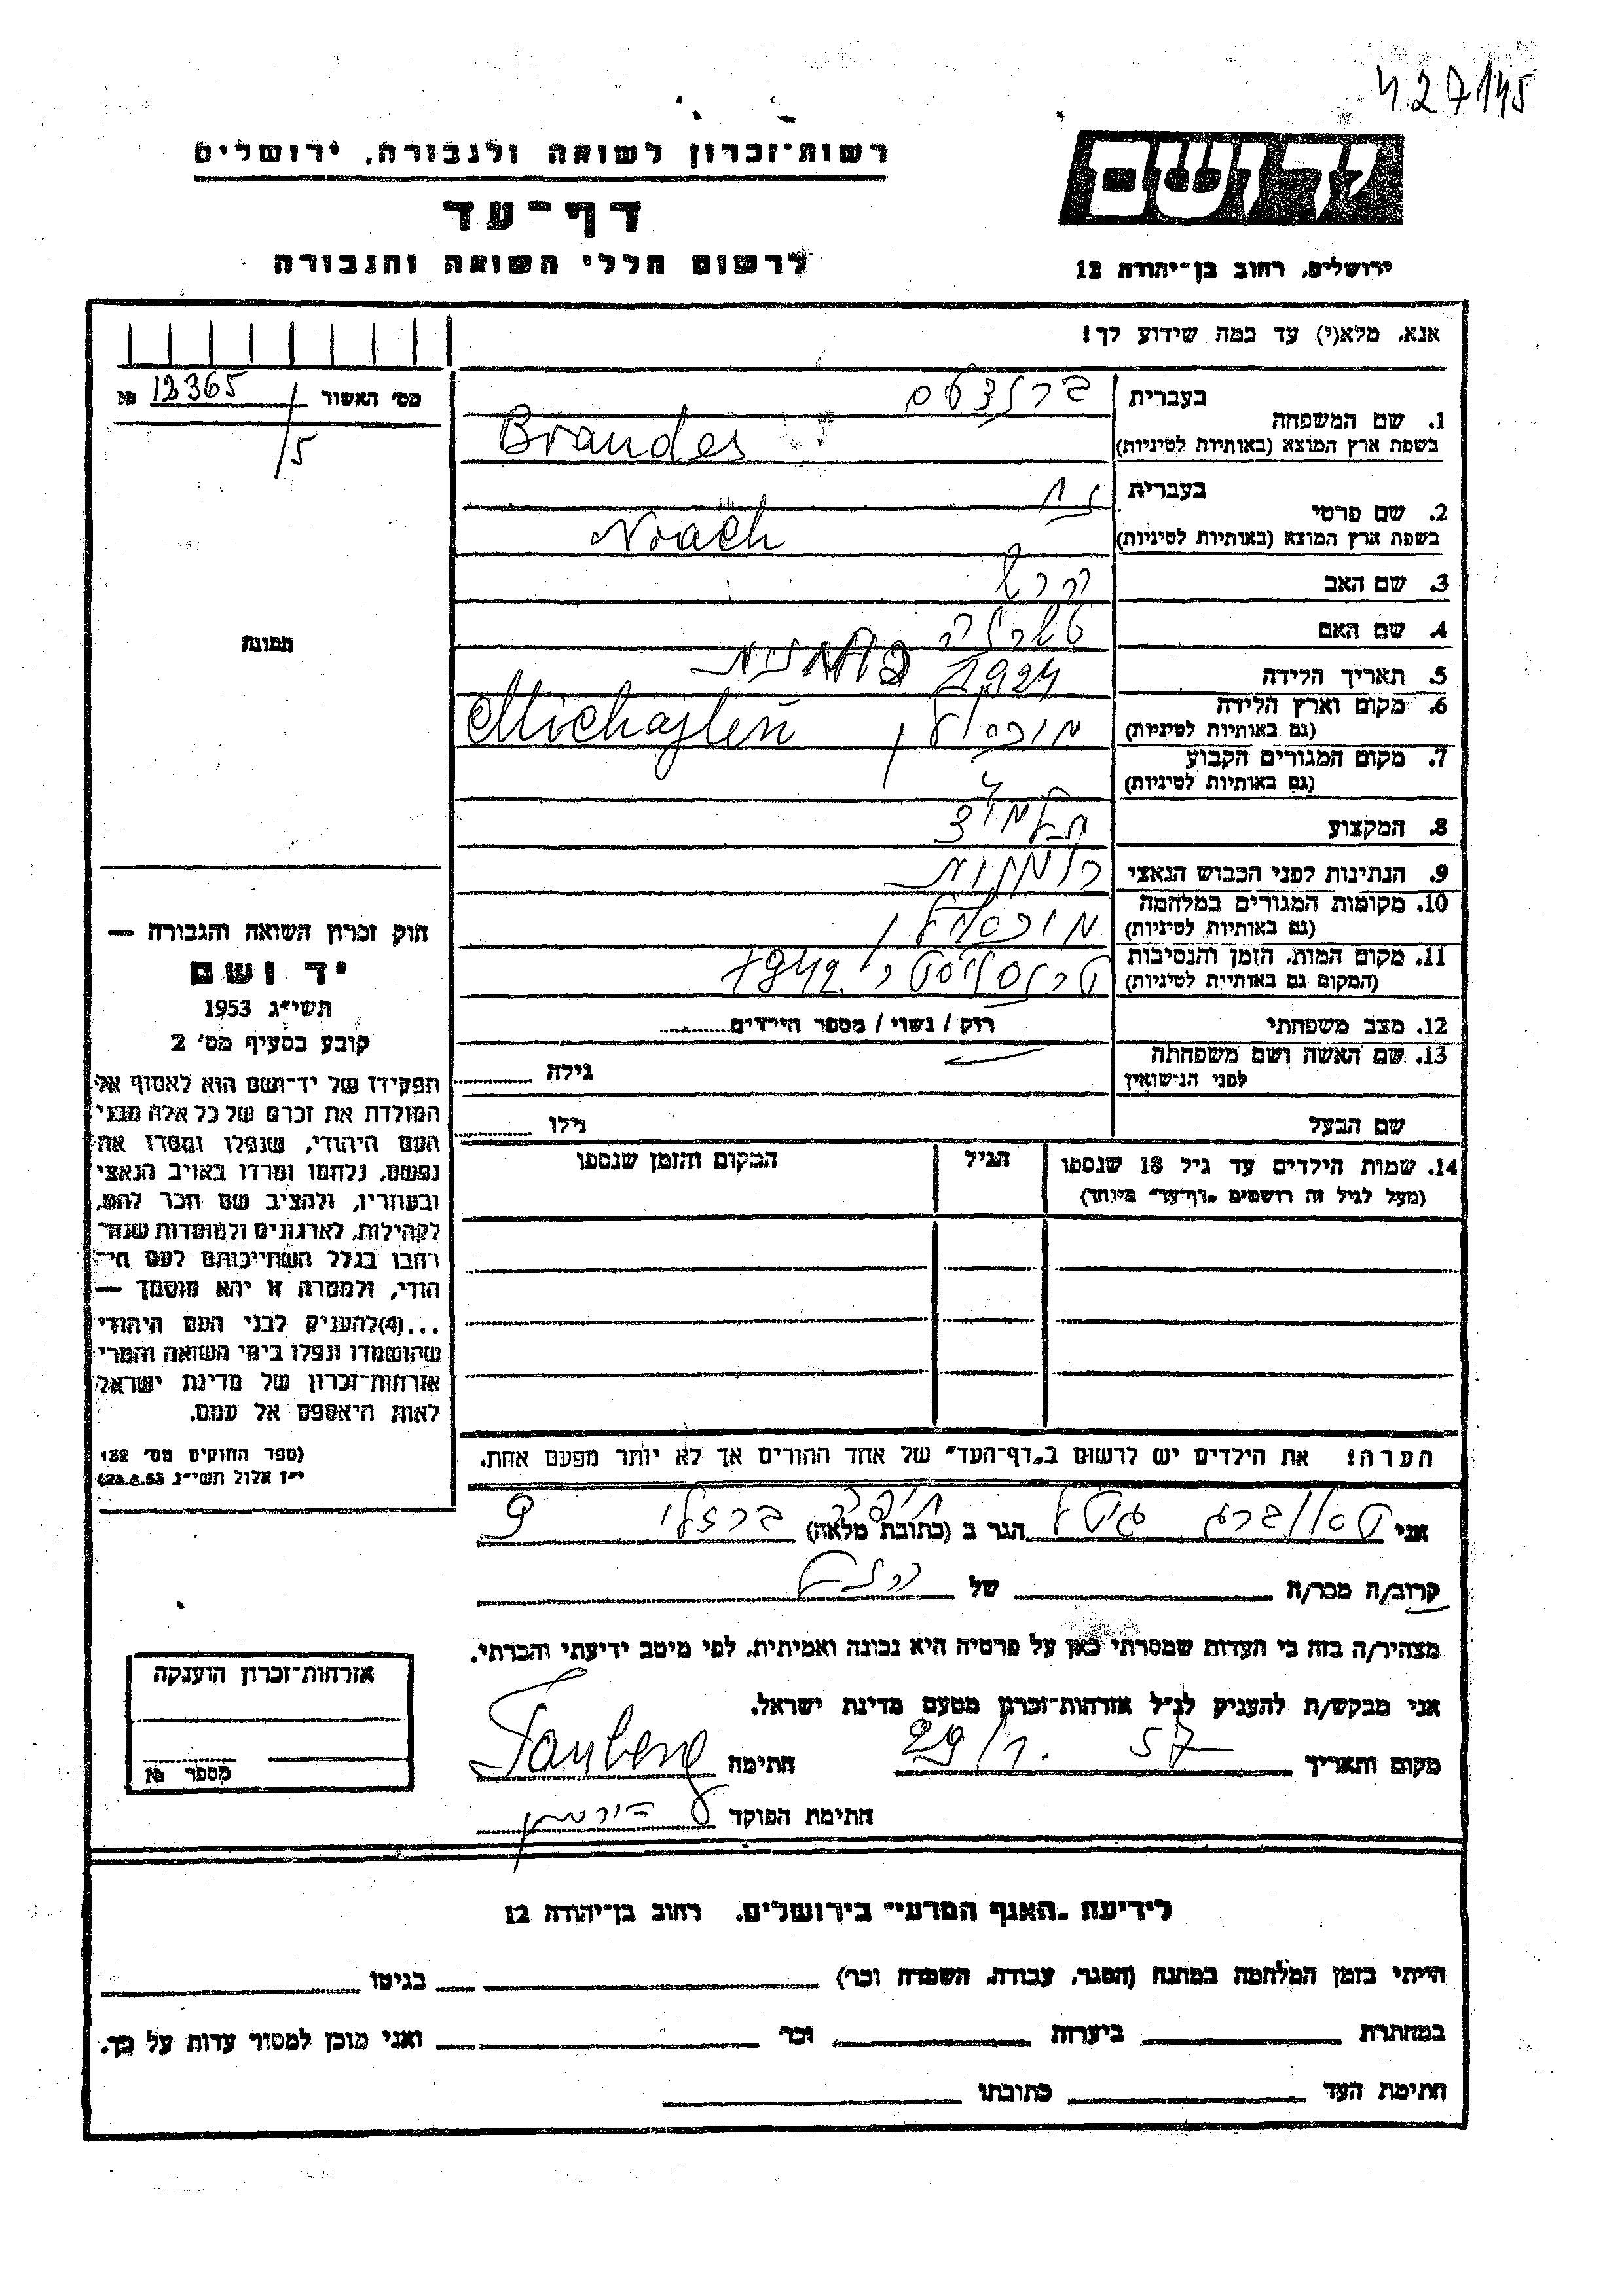 427145
רשות־זכרון לשואה ולגבורה, ירושלים
יד ושם
דף־עד
לרשום חללי השואה והגבורה
ירושלים, רחוב בן־יהודה 12
אנא, מלא(י) עד כמה שידוע לך!
מס׳ האשור № 12365/5
תמונה
1. שם המשפחה בעברית ברנדעס
בשפת ארץ המוצא (באותיות לטיניות) Brandes
2. שם פרטי בעברית נח
בשפת ארץ המוצא (באותיות לטיניות) Noach
3. שם האב
4. שם האם
5. תאריך הלידה 1924
6. מקום וארץ הלידה
(גם באותיות לטיניות) Michajleń
7. מקום המגורים הקבוע
(גם באותיות לטיניות)
8. המקצוע תלמיד
9. הנתינות לפני הכבוש הנאצי רומנית
10. מקומות המגורים במלחמה
(גם באותיות לטיניות)
11. מקום המות, הזמן והנסיבות
(המקום גם באותיות לטיניות) טרנסניסטריה 1942
12. מצב משפחתי רוק / נשוי / מספר הילדים
13. שם האשה ושם משפחתה
לפני הנישואין גילה
שם הבעל גילו
14. שמות הילדים עד גיל 18 שנספו הגיל המקום והזמן שנספו
(מעל לגיל זה רושמים „דף־עד” מיוחד)
הערה! את הילדים יש לרשום ב„דף־העד” של אחד ההורים אך לא יותר מפעם אחת.
חוק זכרון השואה והגבורה —
יד ושם
תשי״ג 1953
קובע בסעיף מס׳ 2
תפקידו של יד־ושם הוא לאסוף אל
המולדת את זכרם של כל אלה מבני
העם היהודי, שנפלו ומסרו את
נפשם, נלחמו ומרדו באויב הנאצי
ובעוזריו, ולהציב שם וזכר להם,
לקהילות, לארגונים ולמוסדות שנח־
רבו בגלל השתייכותם לעם הי־
הודי, ולמטרה זו יהא מוסמך —
...(4)להעניק לבני העם היהודי
שהושמדו ונפלו בימי השואה והמרי
אזרחות־זכרון של מדינת ישראל
לאות היאספם אל עמם.
(ספר החוקים מס׳ 132
י״ז אלול תשי״ג, 28.8.53)
אני טאוברג הגר ב (כתובת מלאה) חיפה ברזילי 9
קרוב/ה מכר/ה של
מצהיר/ה בזה כי העדות שמסרתי כאן על פרטיה היא נכונה ואמיתית, לפי מיטב ידיעתי והכרתי.
אני מבקש/ת להעניק לנ״ל אזרחות־זכרון מטעם מדינת ישראל.
מקום ותאריך 29/1. 57 חתימה Tauberg
חתימת הפוקד
אזרחות־זכרון הוענקה
מספר №
לידיעת „האגף המדעי” בירושלים, רחוב בן־יהודה 12
הייתי בזמן המלחמה במחנה (הסגר, עבודה, השמדה וכר׳) בגיטו
במחתרת ביערות וכר ואני מוכן למסור עדות על כך.
חתימת העד כתובתו